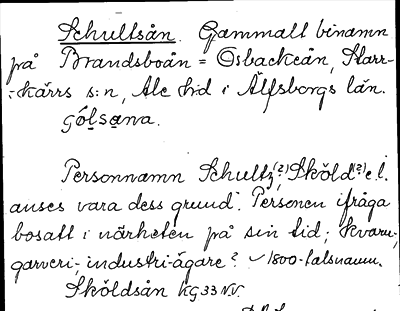 Schultsån. Gammalt binamn
på Brandsboån = Osbackeån, Starr-
-kärrs s:n, Ale hd i Älfsborgs län.
gólsana.
Personnamn Schultz(?), Sköld(?) e.l.
anses vara dess grund. Personen ifråga
bosatt i närheten på sin tid; kvarn-,
garveri-, industri-ägare? 1800-talsnamn.
Sköldsån KG 33 NV.